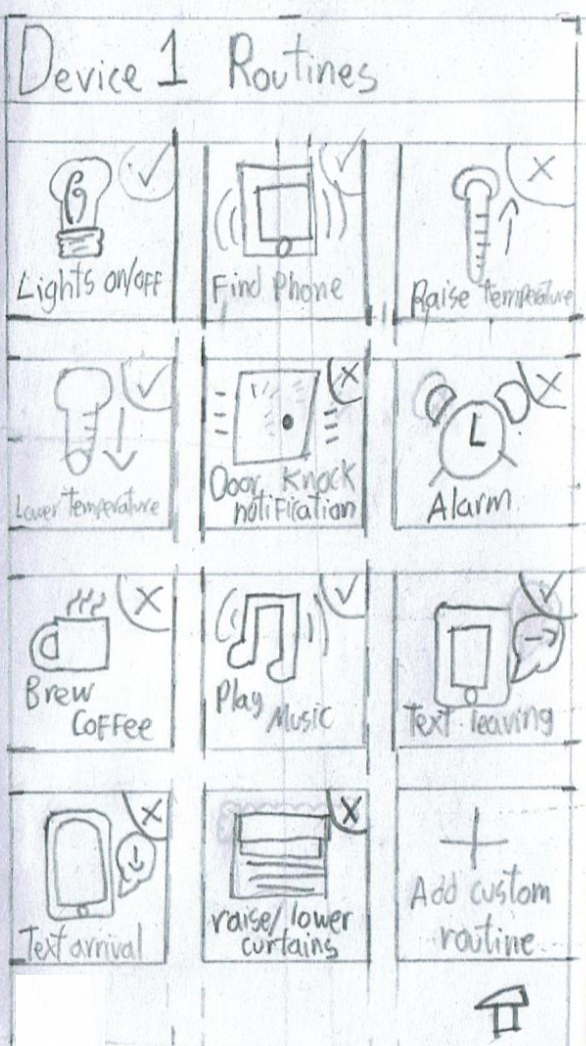 Device 1 Routines
Lights on/off
Find Phone
Raise temperature
Lower temperature
Door Knock
notification
Alarm
Brew
Coffee
Play
Music
Text leaving
Text arrival
raise/lower
curtains
Add custom
routine